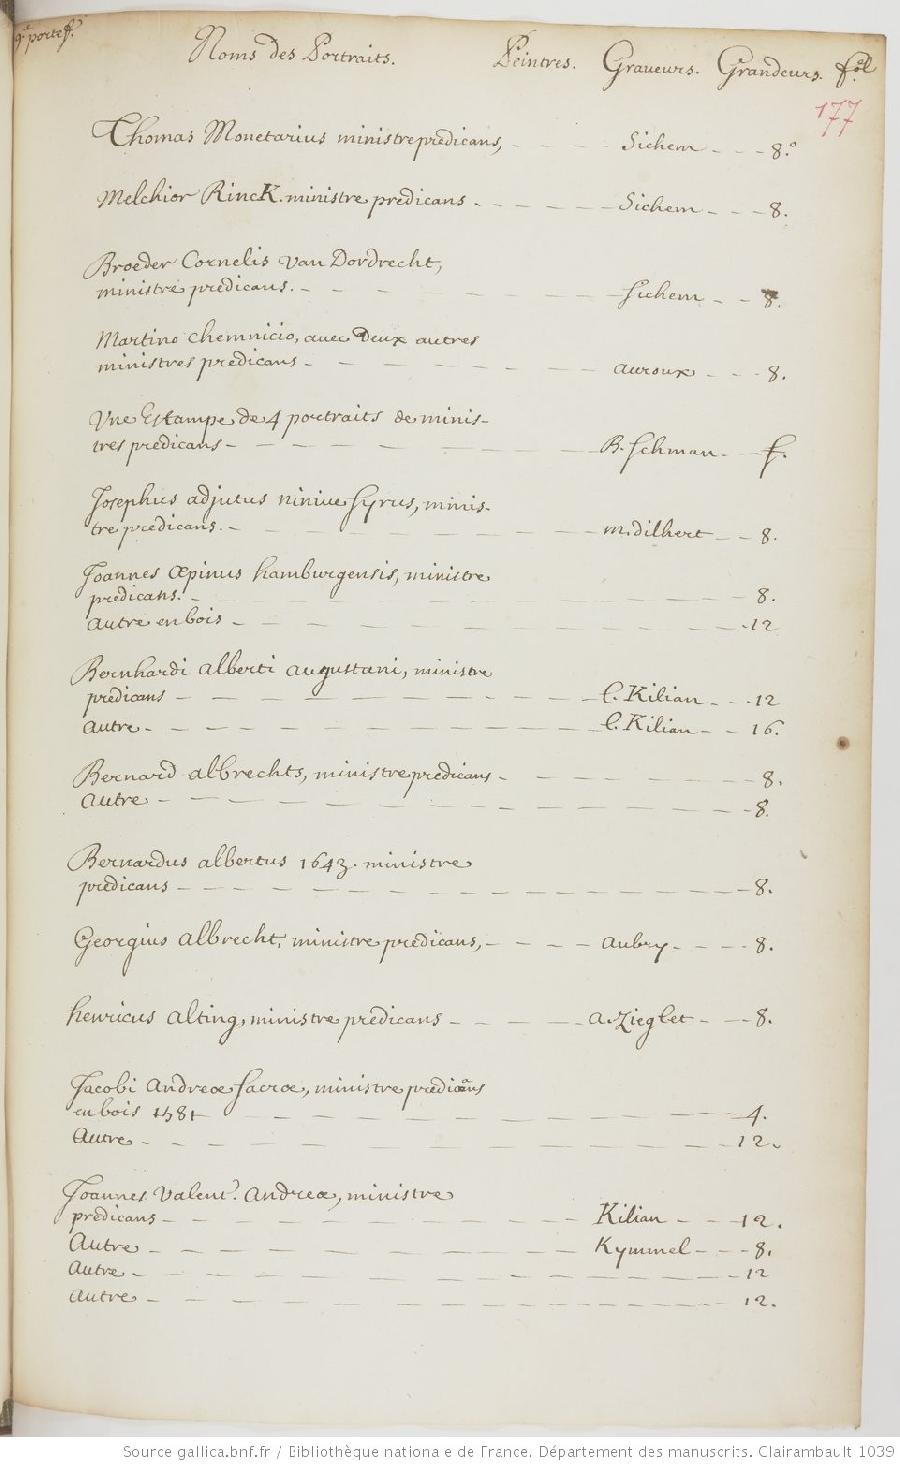 9.e portef.
Noms des Portraits. Peintres. Graveurs. Grandeurs. fol
177
Thomas Monetarius ministre predicans, Sichem 8.o
Melchior Rinck. ministre predicans Sichem 8.
Broeder Cornelis van Dordrecht,
ministre predicans. Sichem 8.
Martino Chemnicio, avec Deux autres
ministres predicans auroux 8.
Vne Estampe de 4 portraits de minis-
tres predicans B. Schman f.
Josephus adjutus ninive Syrus, minis-
tre predicans. m. dilhert 8.
Joannes Œpinus hamburgensis, ministre
predicans. 8.
autre en bois 12
Bernhardi alberti augustani, ministre
predicans l. Kilian 12
autre l. Kilian 16.
Bernard albrechts, ministre predicans 8.
autre 8
Bernardus albertus 1643. ministre
predicans 8.
Georgius albrecht, ministre predicans, aubry 8.
henricus alting, ministre predicans a. Zieglet 8.
Jacobi andreæ Sacræ, ministre predicans
en bois 1581 4.
autre 12.
Joannes Valent.s andreæ, ministre
predicans Kilian 12.
autre Kymmel 8.
autre 12
autre 12.
Source gallica.bnf.fr / Bibliothèque nationale de France. Département des manuscrits. Clairambault 1039